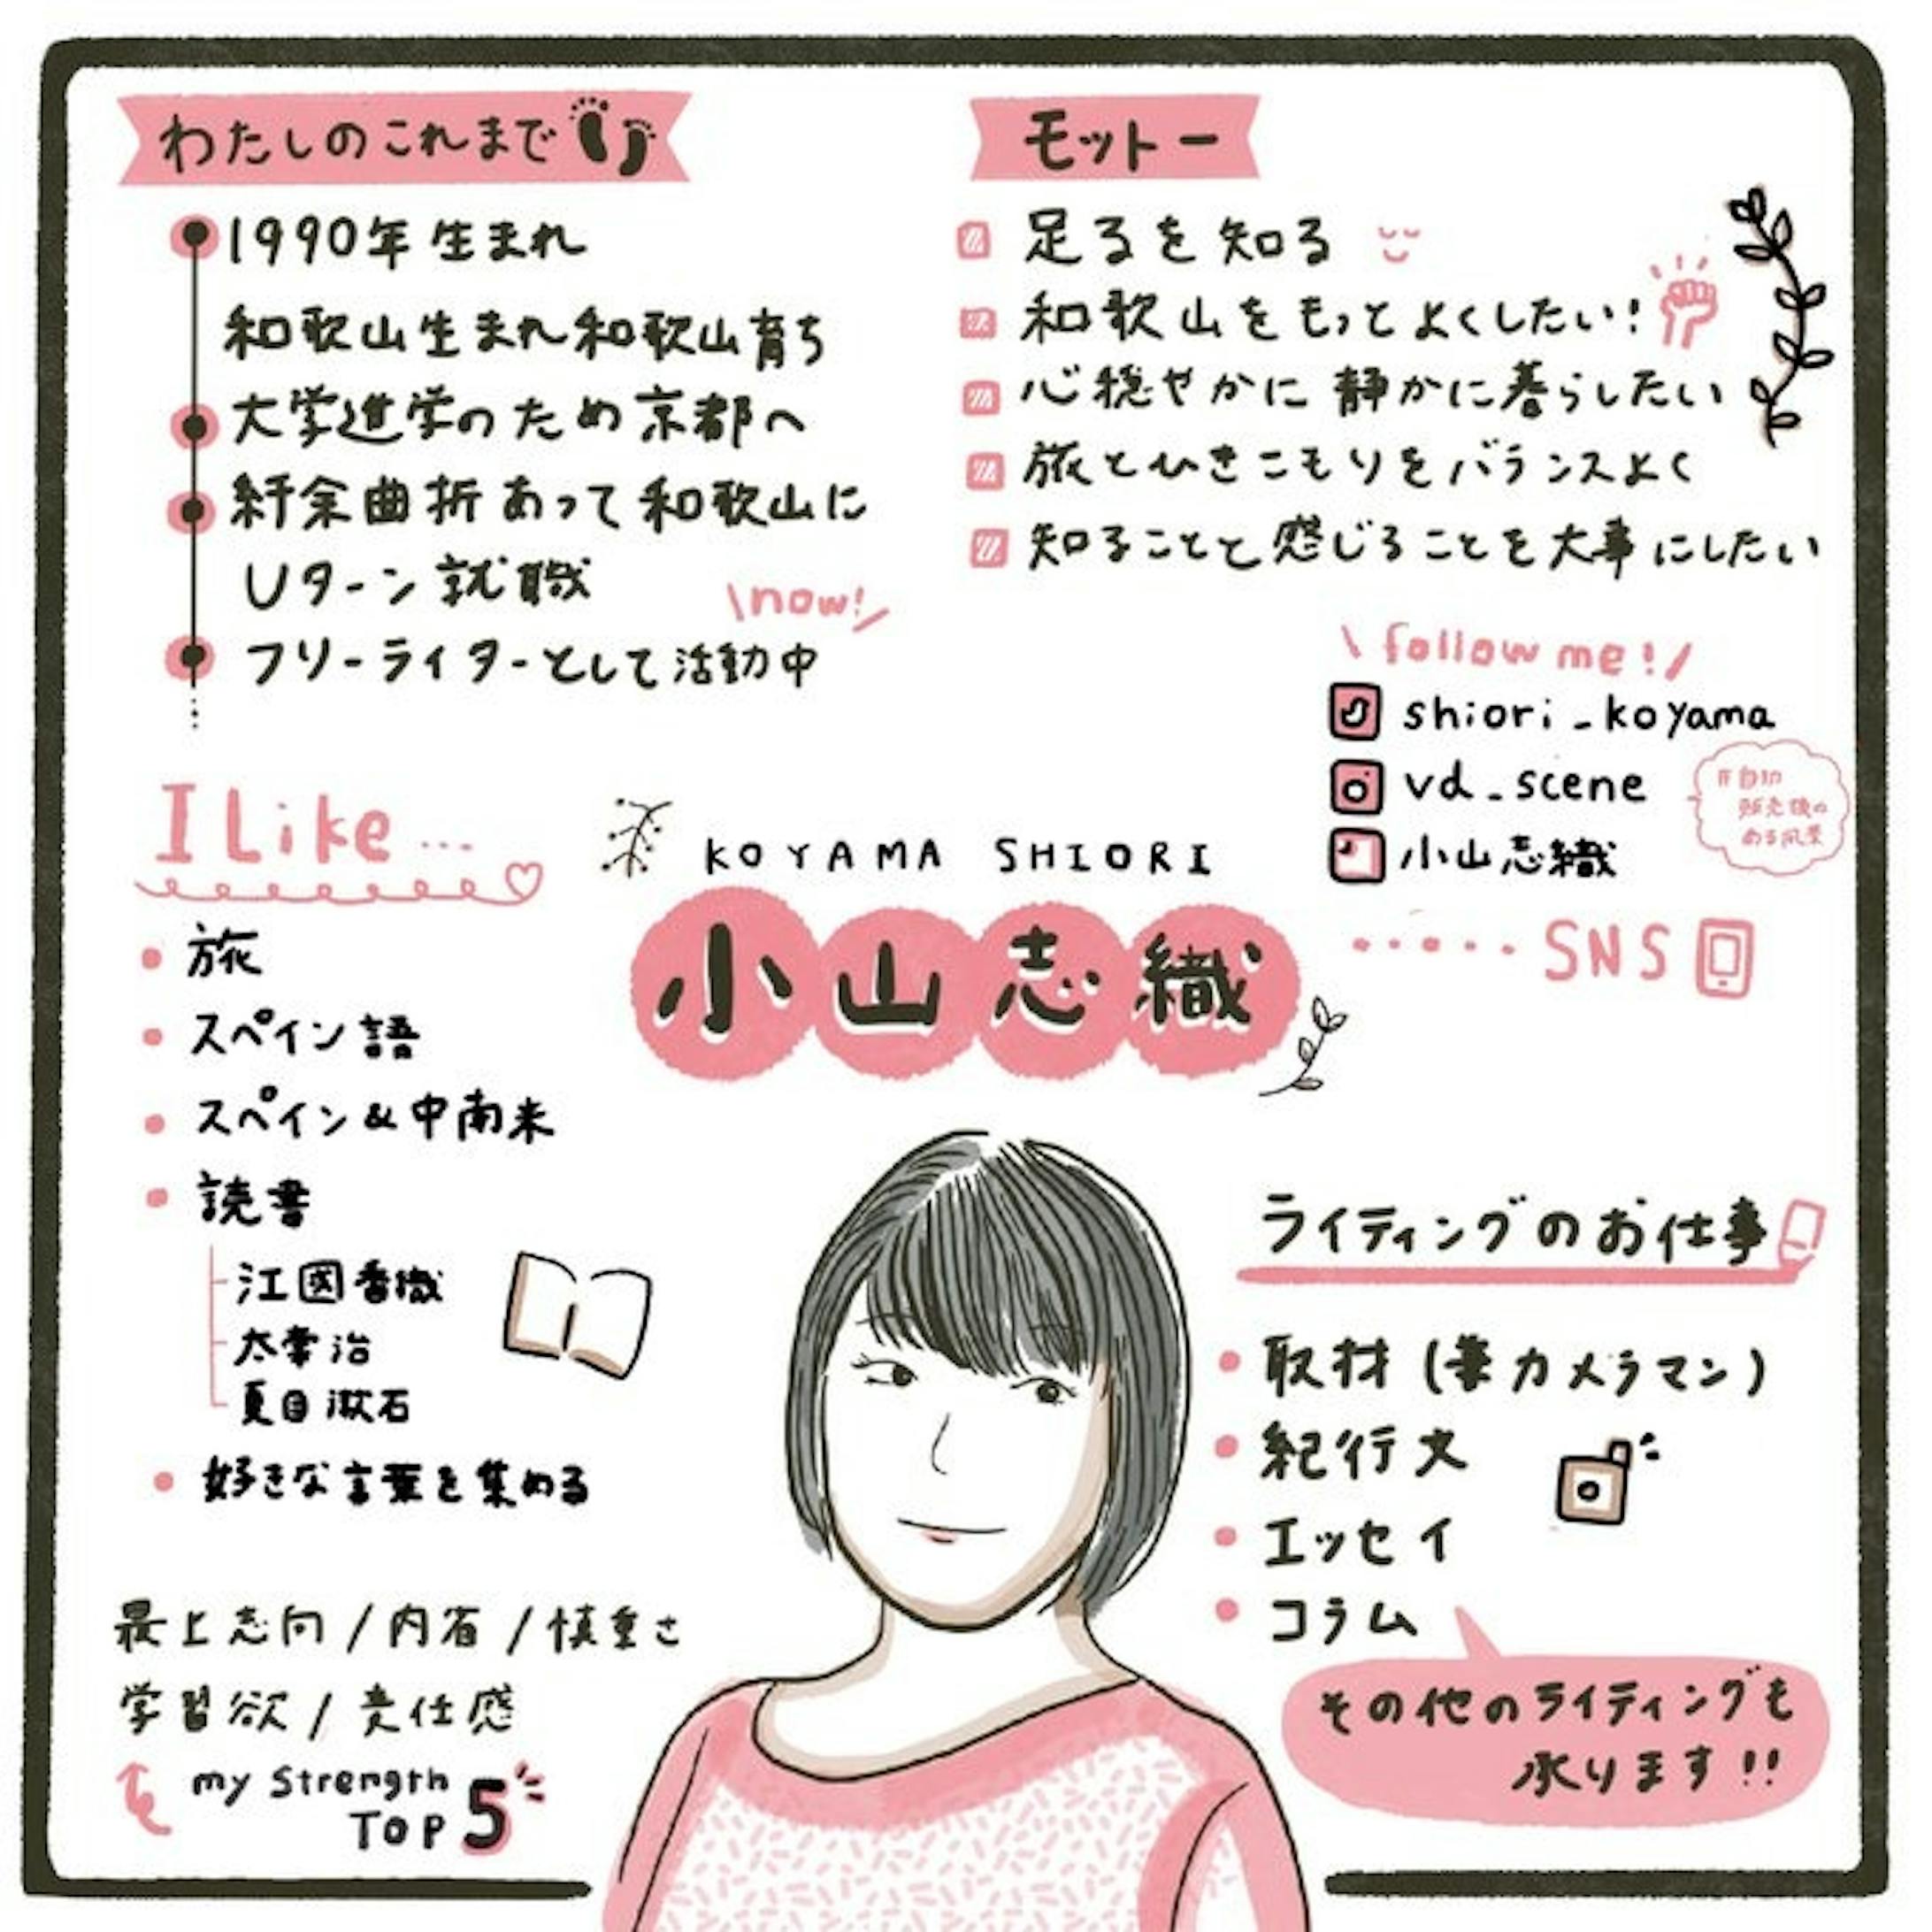 わたしのこれまで
1990年生まれ
和歌山生まれ和歌山育ち
大学進学のため京都へ
紆余曲折あって和歌山に
Uターン就職
\now!/
フリーライターとして活動中
モットー
足るを知る
和歌山をもっとよくしたい!
心穏やかに静かに暮らしたい
旅とひきこもりをバランスよく
知ることと感じることを大事にしたい
\follow me!/
shiori_koyama
vd_scene
#自動
販売機の
ある風景
小山志織
SNS
I Like...
旅
スペイン語
スペイン&中南米
読書
江國香織
太宰治
夏目漱石
好きな言葉を集める
KOYAMA SHIORI
小山志織
最上志向/内省/慎重さ
学習欲/責任感
my Strength
TOP 5
ライティングのお仕事
取材(兼カメラマン)
紀行文
エッセイ
コラム
その他のライティングも
承ります!!